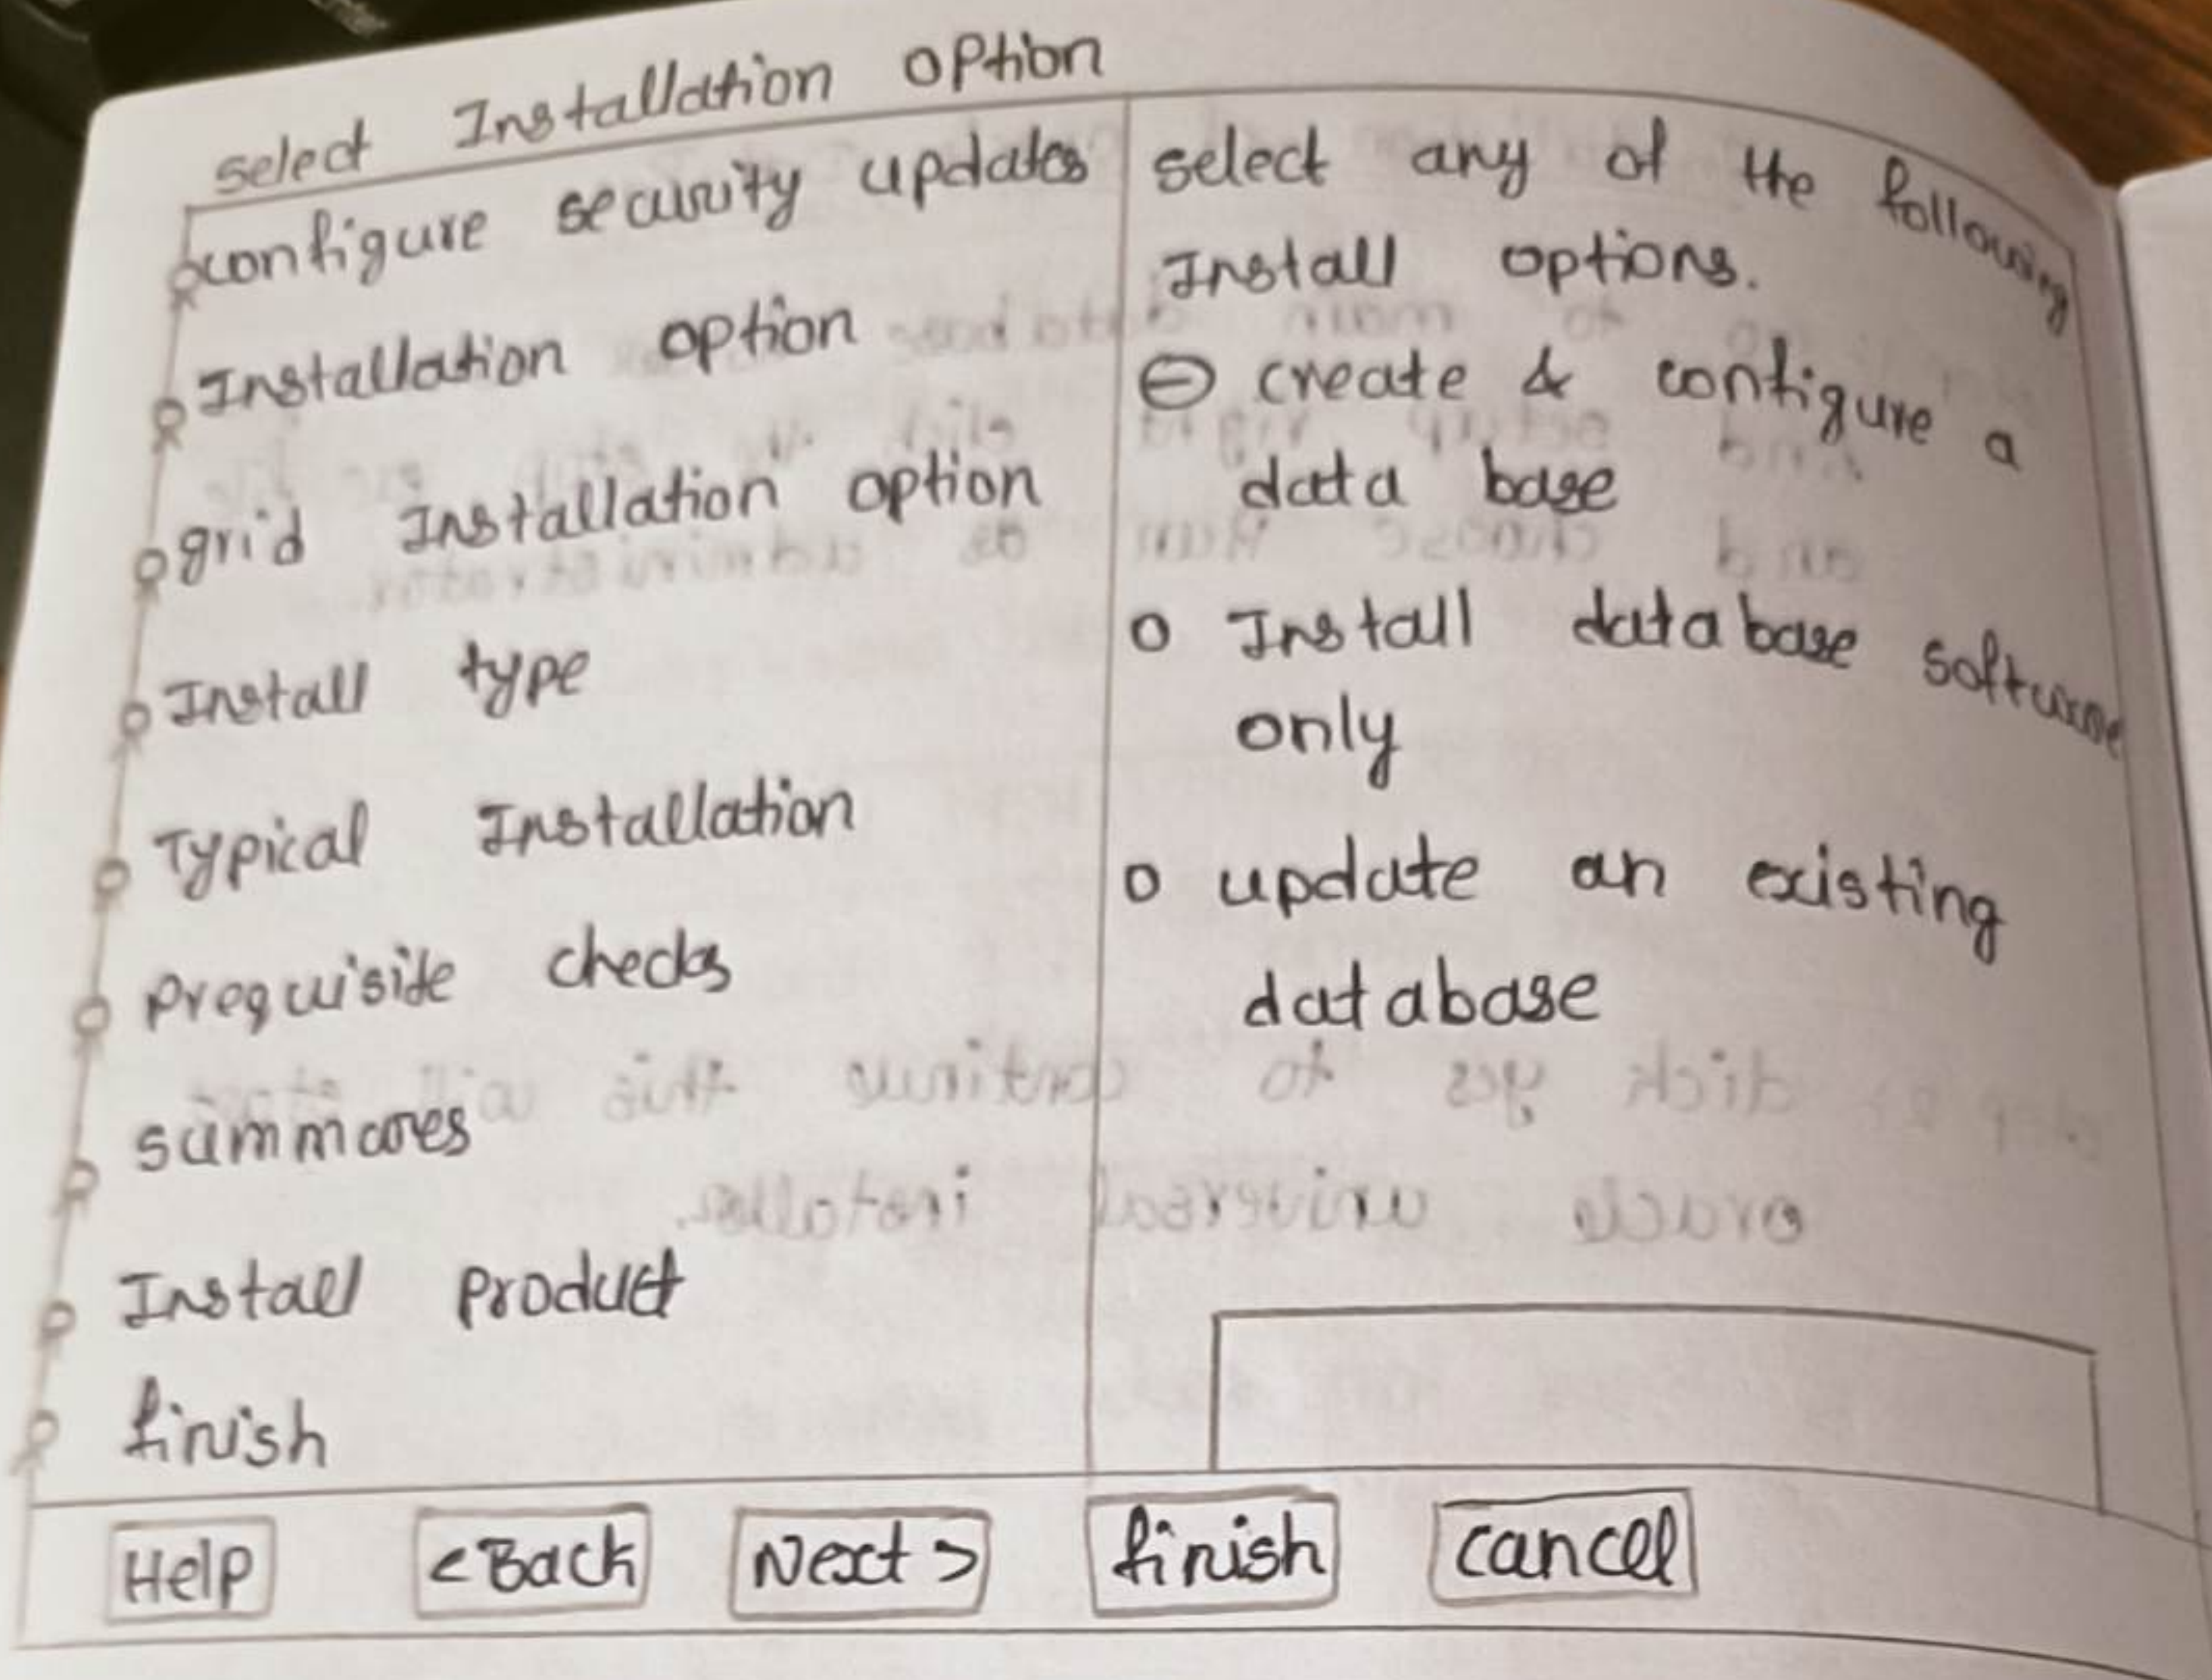 select Installation option
configure security updates
Installation option
grid Installation option
Install type
Typical Installation
prequiside checks
summares
Install product
finish
select any of the following
Install options.
create & configure a
data base
Install database software
only
update an existing
database
Help <Back Next> finish cancel